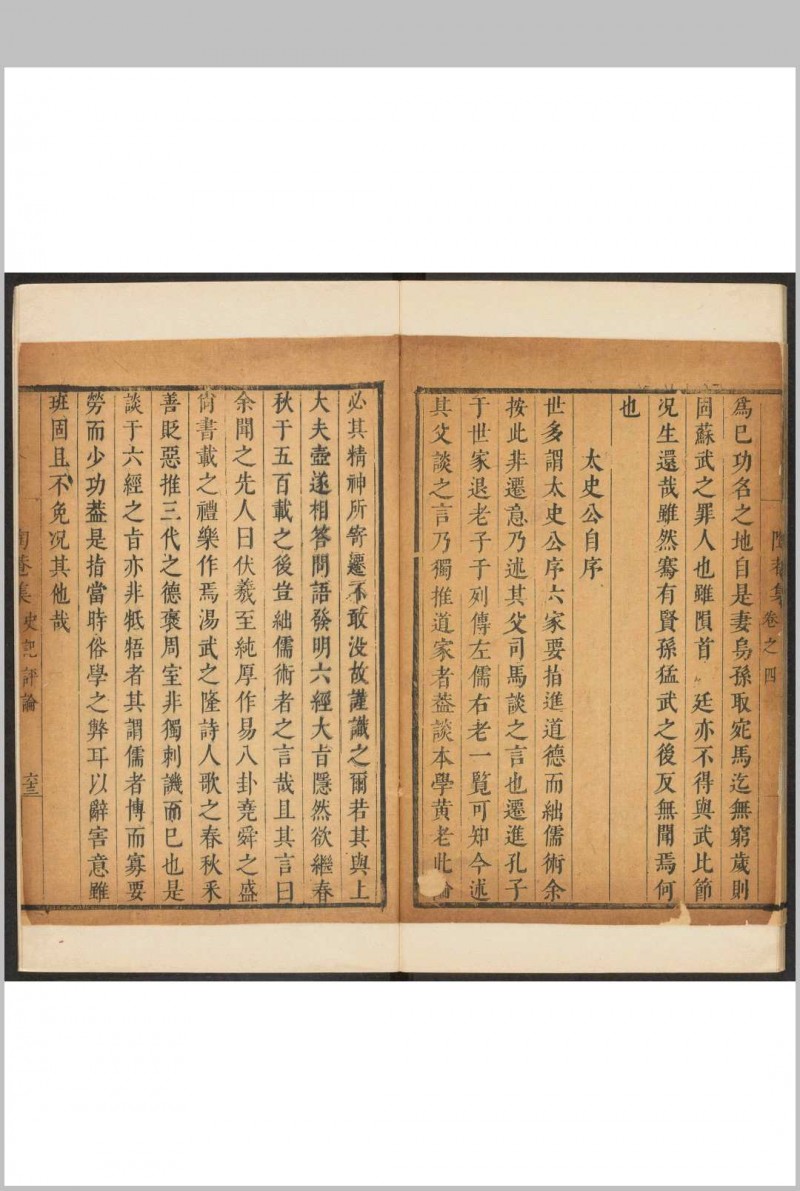 卷之四
爲已功名之地自是妻烏孫取宛馬迄無窮歲則
固蘇武之罪人也雖隕首 廷亦不得與武比節
况生還哉雖然騫有賢孫猛武之後反無聞焉何
也
太史公自序
世多謂太史公序六家要指進道德而絀儒術余
按此非遷意乃述其父司馬談之言也遷進孔子
于世家退老子于列傳左儒右老一覧可知今述
其父談之言乃獨推道家者葢談本學黄老此論
必其精神所寄遷不敢没故謹識之爾若其與上
大夫壺遂相答問語發明六經大㫖隱然欲繼春
秋于五百載之後豈絀儒術者之言哉且其言曰
余聞之先人曰伏羲至純厚作易八卦堯舜之盛
尚書載之禮樂作焉湯武之隆詩人歌之春秋釆
善貶惡推三代之德褒周室非獨刺譏而已也是
談于六經之㫖亦非牴牾者其謂儒者博而寡要
勞而少功葢是指當時俗學之弊耳以辭害意雖
班固且不免况其他哉
陶菴集 史記評論 六十三